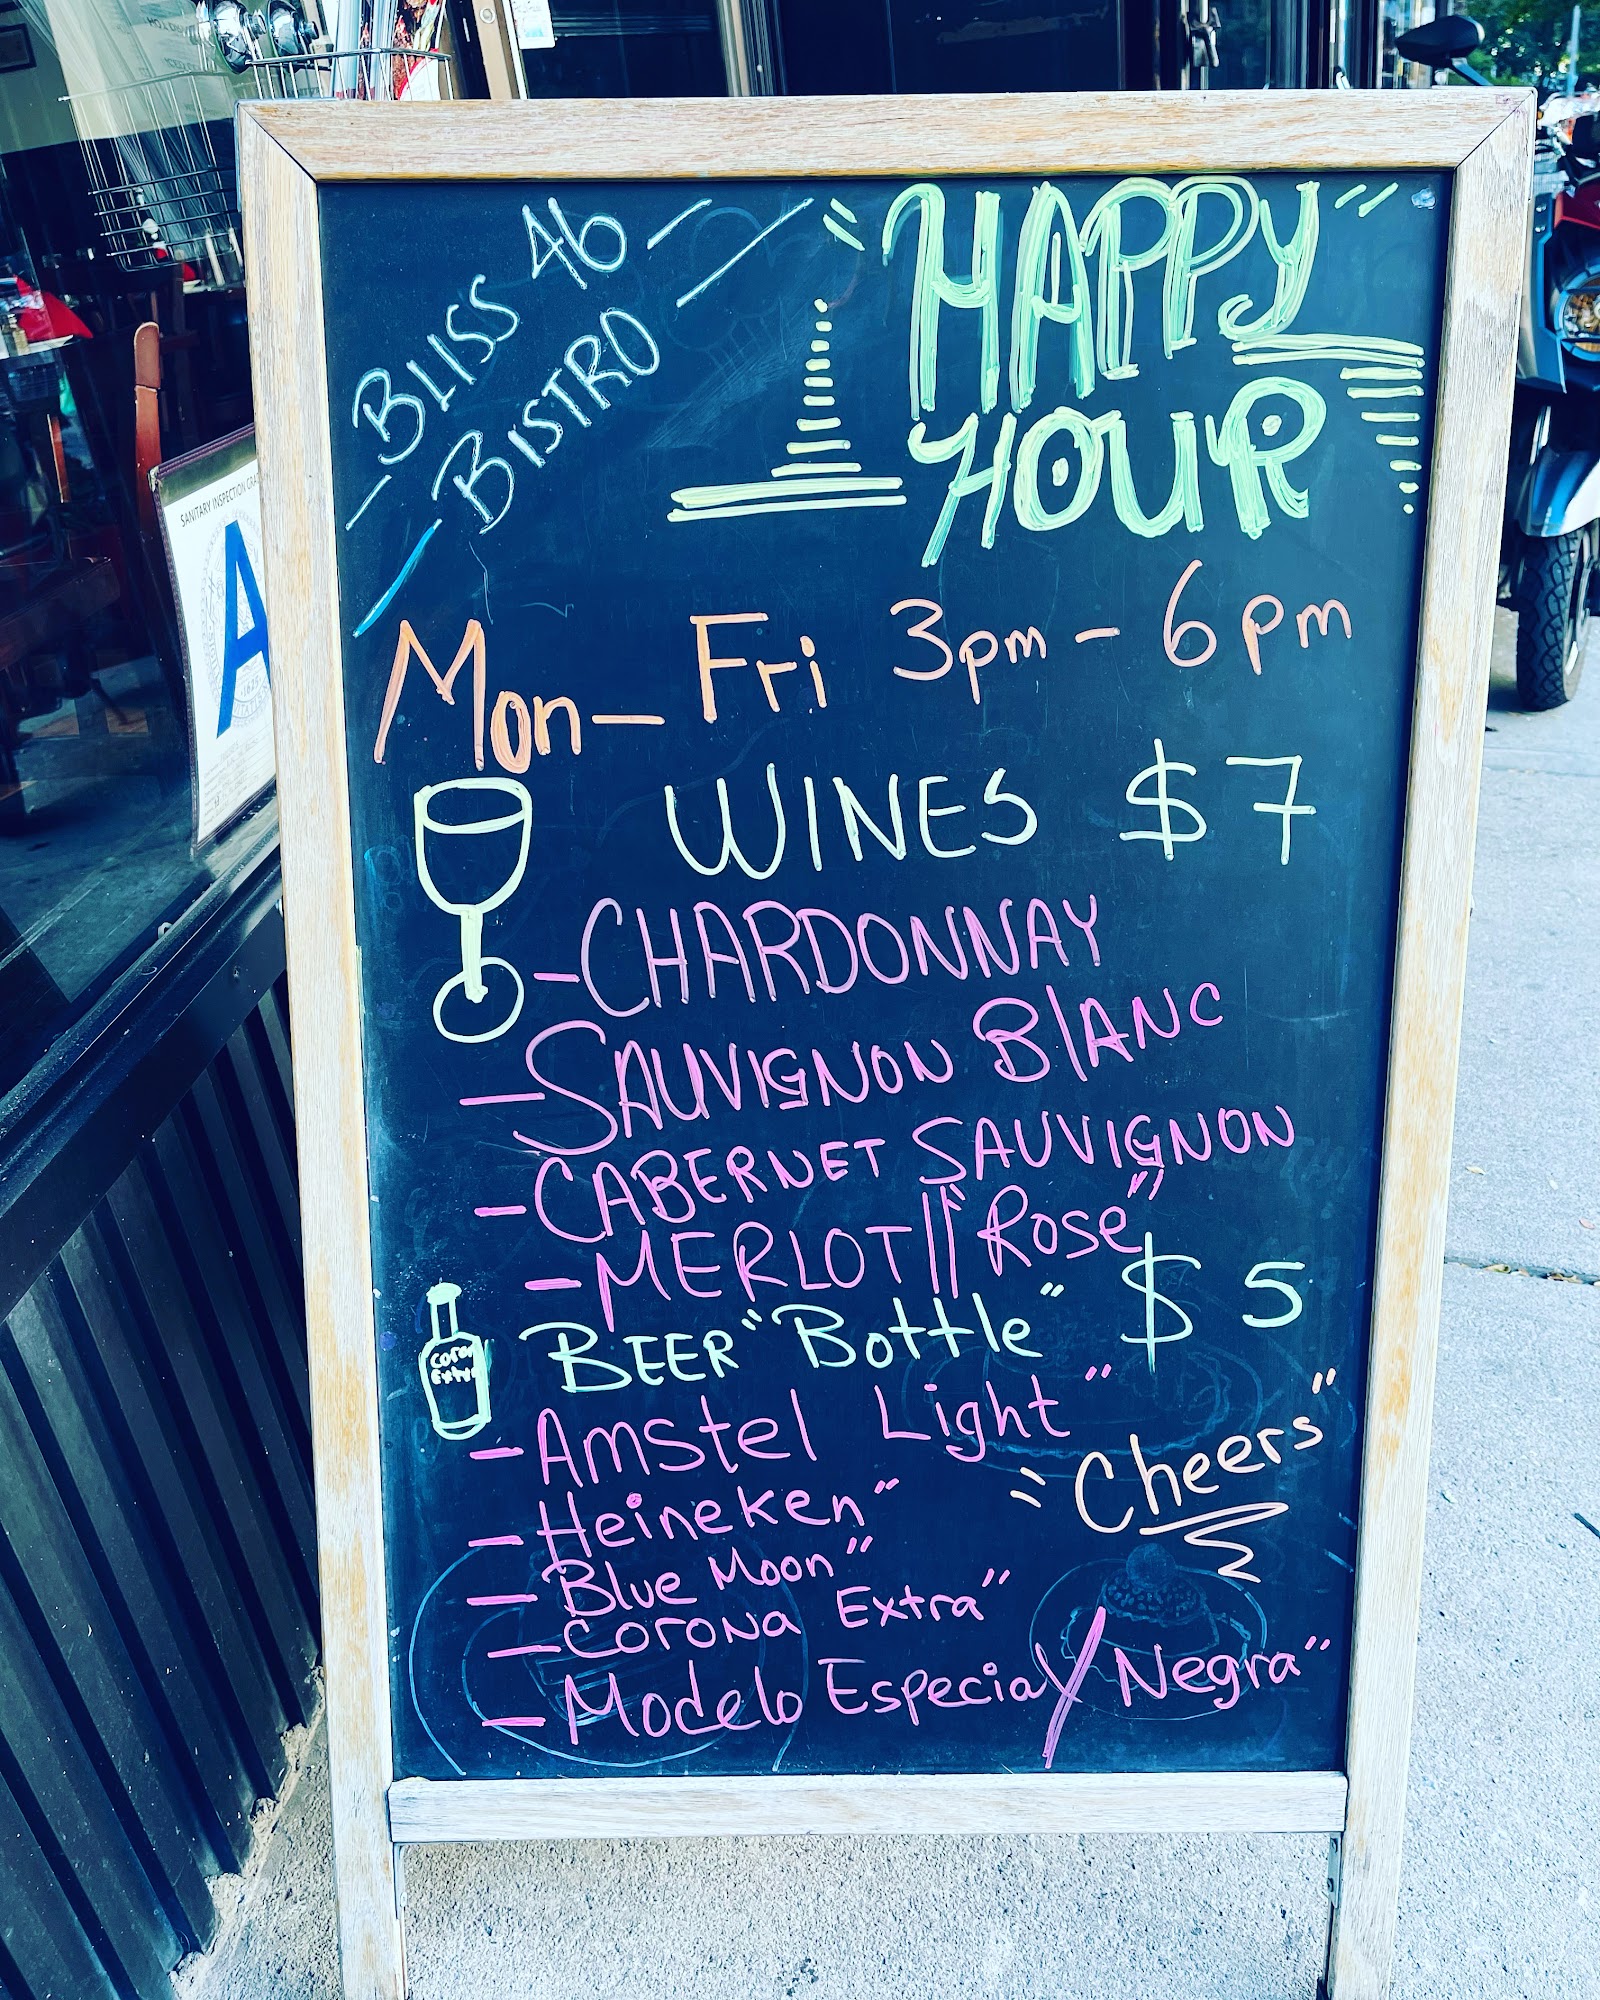 BLISS 46
BISTRO
"HAPPY"
HOUR
Mon - Fri 3pm - 6pm
WINES $7
- CHARDONNAY
- SAUVIGNON BlANC
- CABERNET SAUVIGNON
- MERLOT || "Rose"
BEER "Bottle" $5
Corona
Extra
- Amstel Light"
- Heineken"
"Cheers"
- Blue Moon"
- Corona Extra"
- Modelo Especial / Negra"
SANITARY INSPECTION GRA
A